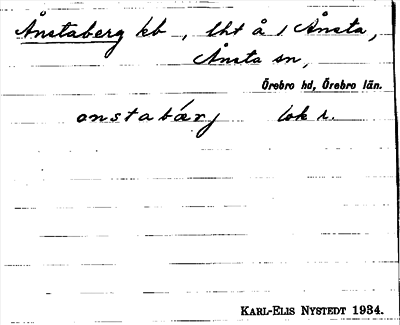 Ånstaberg kb, lht å / Ånsta,
Ånsta sn,
Örebro hd, Örebro län.
onstabærj lok r.
KARL-ELIS NYSTEDT 1934.